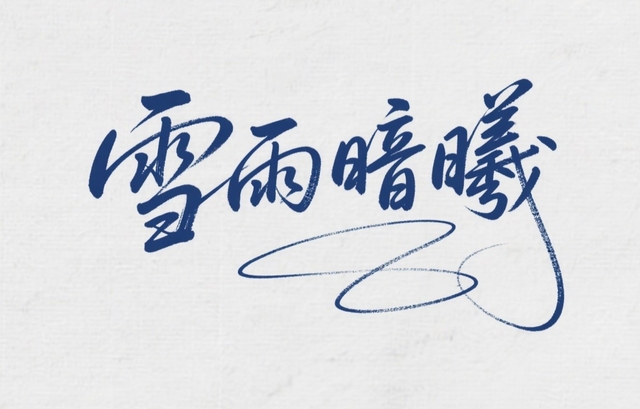 雪雨暗曦